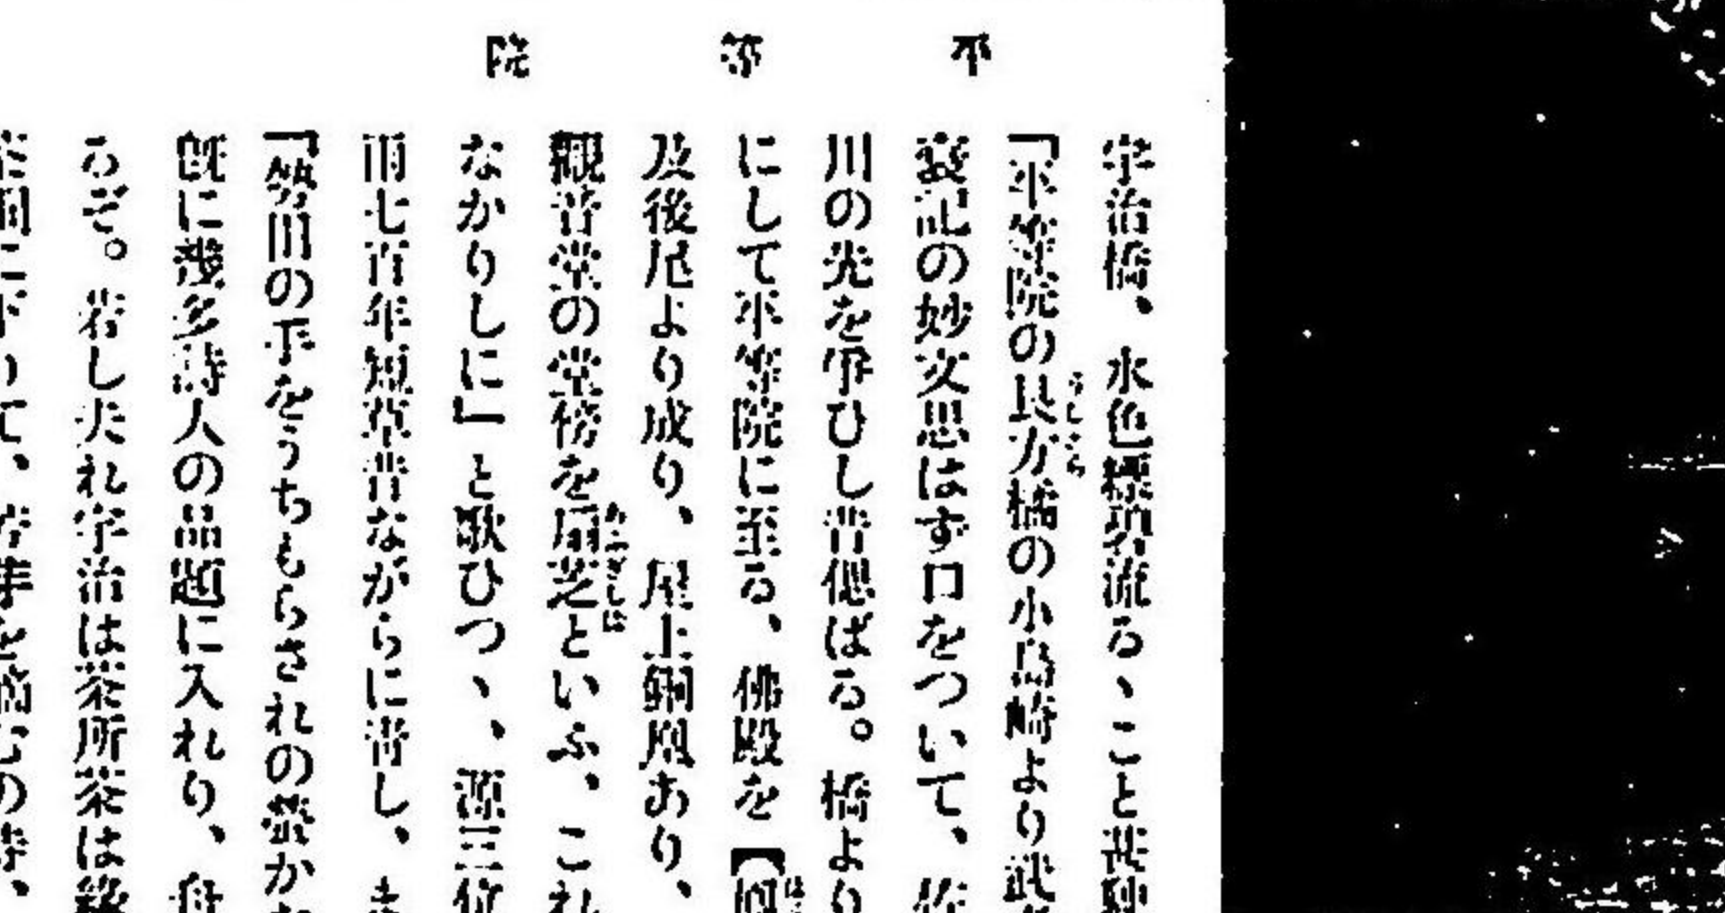 平等院
宇治橋、水色縹碧流る、こと甚
「平等院の艮方橘の小島崎より武
衰記の妙文思はず口をついて、佐
川の先を爭ひし昔偲ばる。橋より
にして平等院に至る、佛殿を【鳳
及後尾より成り、屋上銅鳳あり、
觀音堂の堂傍を扇芝といふ、これ
なかりしに」と歌ひつゝ、源三位
雨七百年短草昔ながらに青し、ま
「勢田の手をうちもらされの螢か
既に幾多詩人の品題に入れり、舟
ろぞ。若し夫れ宇治は茶所茶は縁